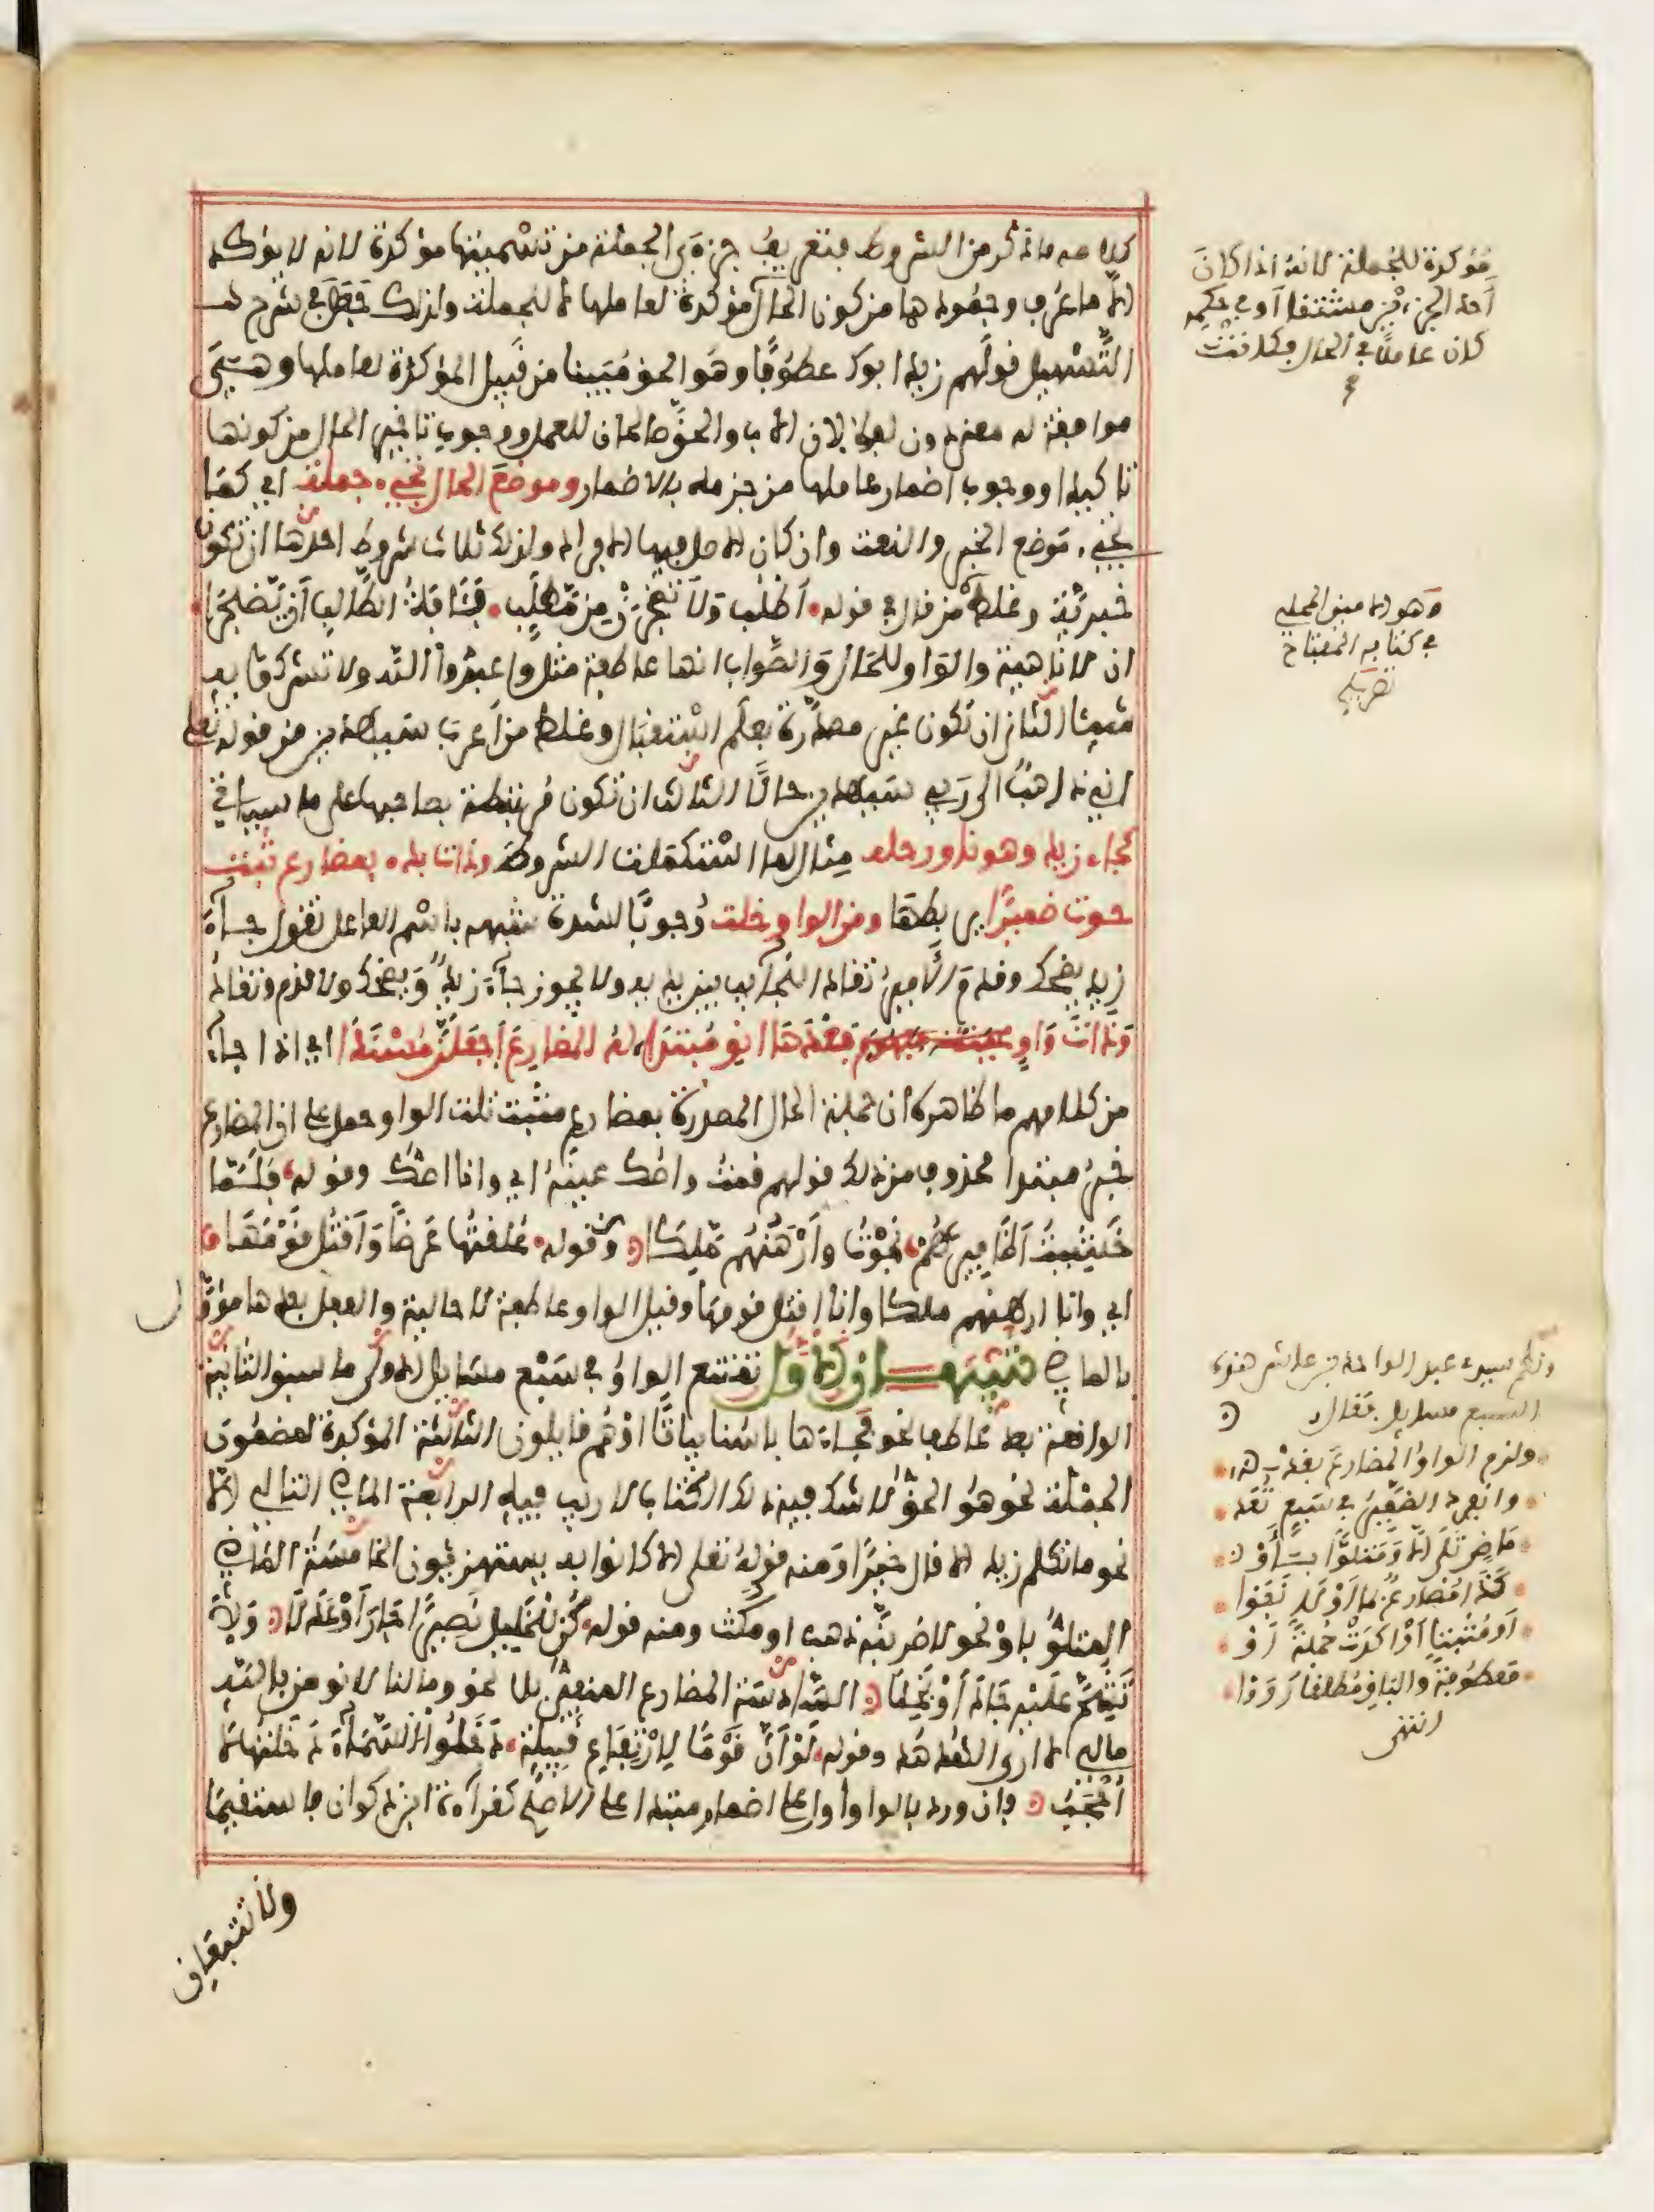 كلامه ما ذكر من الشروط فتعريف جزءي الجملة من تسميتها مؤكدة لانه لا يؤكد
الا ما عرف وجمودها من كون الحال مؤكدة لعاملها لا للجملة ولذلك جعل في شرح
التسهيل قولهم زيد ابوك عطوفا وهو الحق مبينا من قبيل المؤكدة لعاملها وهي
موافقة له معنى دون لفظا لان الاب والحق صالحان للعمل ووجوب تاخير الحال من كونها
تاكيدا ووجوب اضمار عاملها من جزمه بالاضمار وموضع الحال تجيء جملة اي كما
تجيء موضع الخبر والنعت وان كان الاصل فيها الافراد ولذلك ثلاث شروط احدها ان تكون
خبرية وغلط من قال في قوله اطلب ولا تضجر من مطلب فئافة الطالب ان يضجرا
ان لا ناهية والواو للحال والصواب انها عاطفة مثل واعبدوا الله ولا تشركوا به
شيئا الثاني ان تكون غير مصدرة بعلم استقبال وغلط من اعرب سيهدين من قوله تعلى
اني ذاهب الى ربي سيهدين حالا الثالث ان تكون مرتبطة بصاحبها على ما سياتي
كجاء زيد وهو ناو رحله مثال لما استكملت الشروط وذات بدء بمضارع ثبت
حوت ضميرا يربطها ومن الواو خلت وجوبا لشدة شبهه باسم الفاعل تقول جاء
زيد يضحك وقدم الامير تقاد الجنائب بين يديه ولا يجوز جاء زيد ويضحك ولا قدم وتقاد
وذات واو بعدها انو مبتدا له المضارع اجعلن مسندا اي اذا جاء
من كلامهم ما ظاهره ان جملة الحال المصدرة بمضارع مثبت تلت الواو حمل على ان المضارع
خبر مبتدا محذوف من ذلك قولهم قمت واصك عينه اي وانا اصك وقوله فلما
خشيت اظافيرهم نجوت وارهنهم ملكا وقوله علقتها عرضا واقتل قومها
اي وانا ارهنهم ملكا وانا اقتل قومها وقيل الواو عاطفة لا حالية والفعل بعدها مؤول
بالماضي تنبيهات الاول تمتنع الواو في سبع مسايل الاولى ما سبق الثانية
الواقعة بعد عاطف نحو فجاءها باسنا بياتا او هم قايلون الثالثة المؤكدة لمضمون
الجملة نحو هو الحق لا شك فيه ذلك الكتاب لا ريب فيه الرابعة الماضي التالي الا
نحو ما تكلم زيد الا قال خيرا ومنه قوله تعلى الا كانوا به يستهزءون الخامسة الماضي
المتلو باو نحو لاضربنه ذهب او مكث ومنه قوله كن للخليل نصيرا جار او عدلا ولا
تشح عليه جاد او بخلا السادسة المضارع المنفي بلا نحو وما لنا لا نومن بالله
مالي لا ارى الهدهد وقوله لو ان قوما لارتفاع قبيلة دخلوا السماء دخلتها لا
احجب فان ورد بالواو اول على اضمار مبتدا على الاصح كقراءة ابن ذكوان فاستقيما
ولا تتبعان
مؤكدة للجملة لانه اذا كان
احد الجزءين مشتقا او في حكمه
كان عاملا في الحال فكانت
وهو الامين المحلي
في كتابه المفتاح
تصريح
ونظم سيدي عبد الواحد بن عاشر هذه
السبع مسايل فقال
ولزم الواو المضارع بعد قد
وانفرد الضمير في سبع تعد
ماض تلى الا ومتلوا باو
كذا مضارع بما او لا نفوا
او مثبتا او اكدت جملة او
معطوفة والباقي مطلقا رووا
انتهى